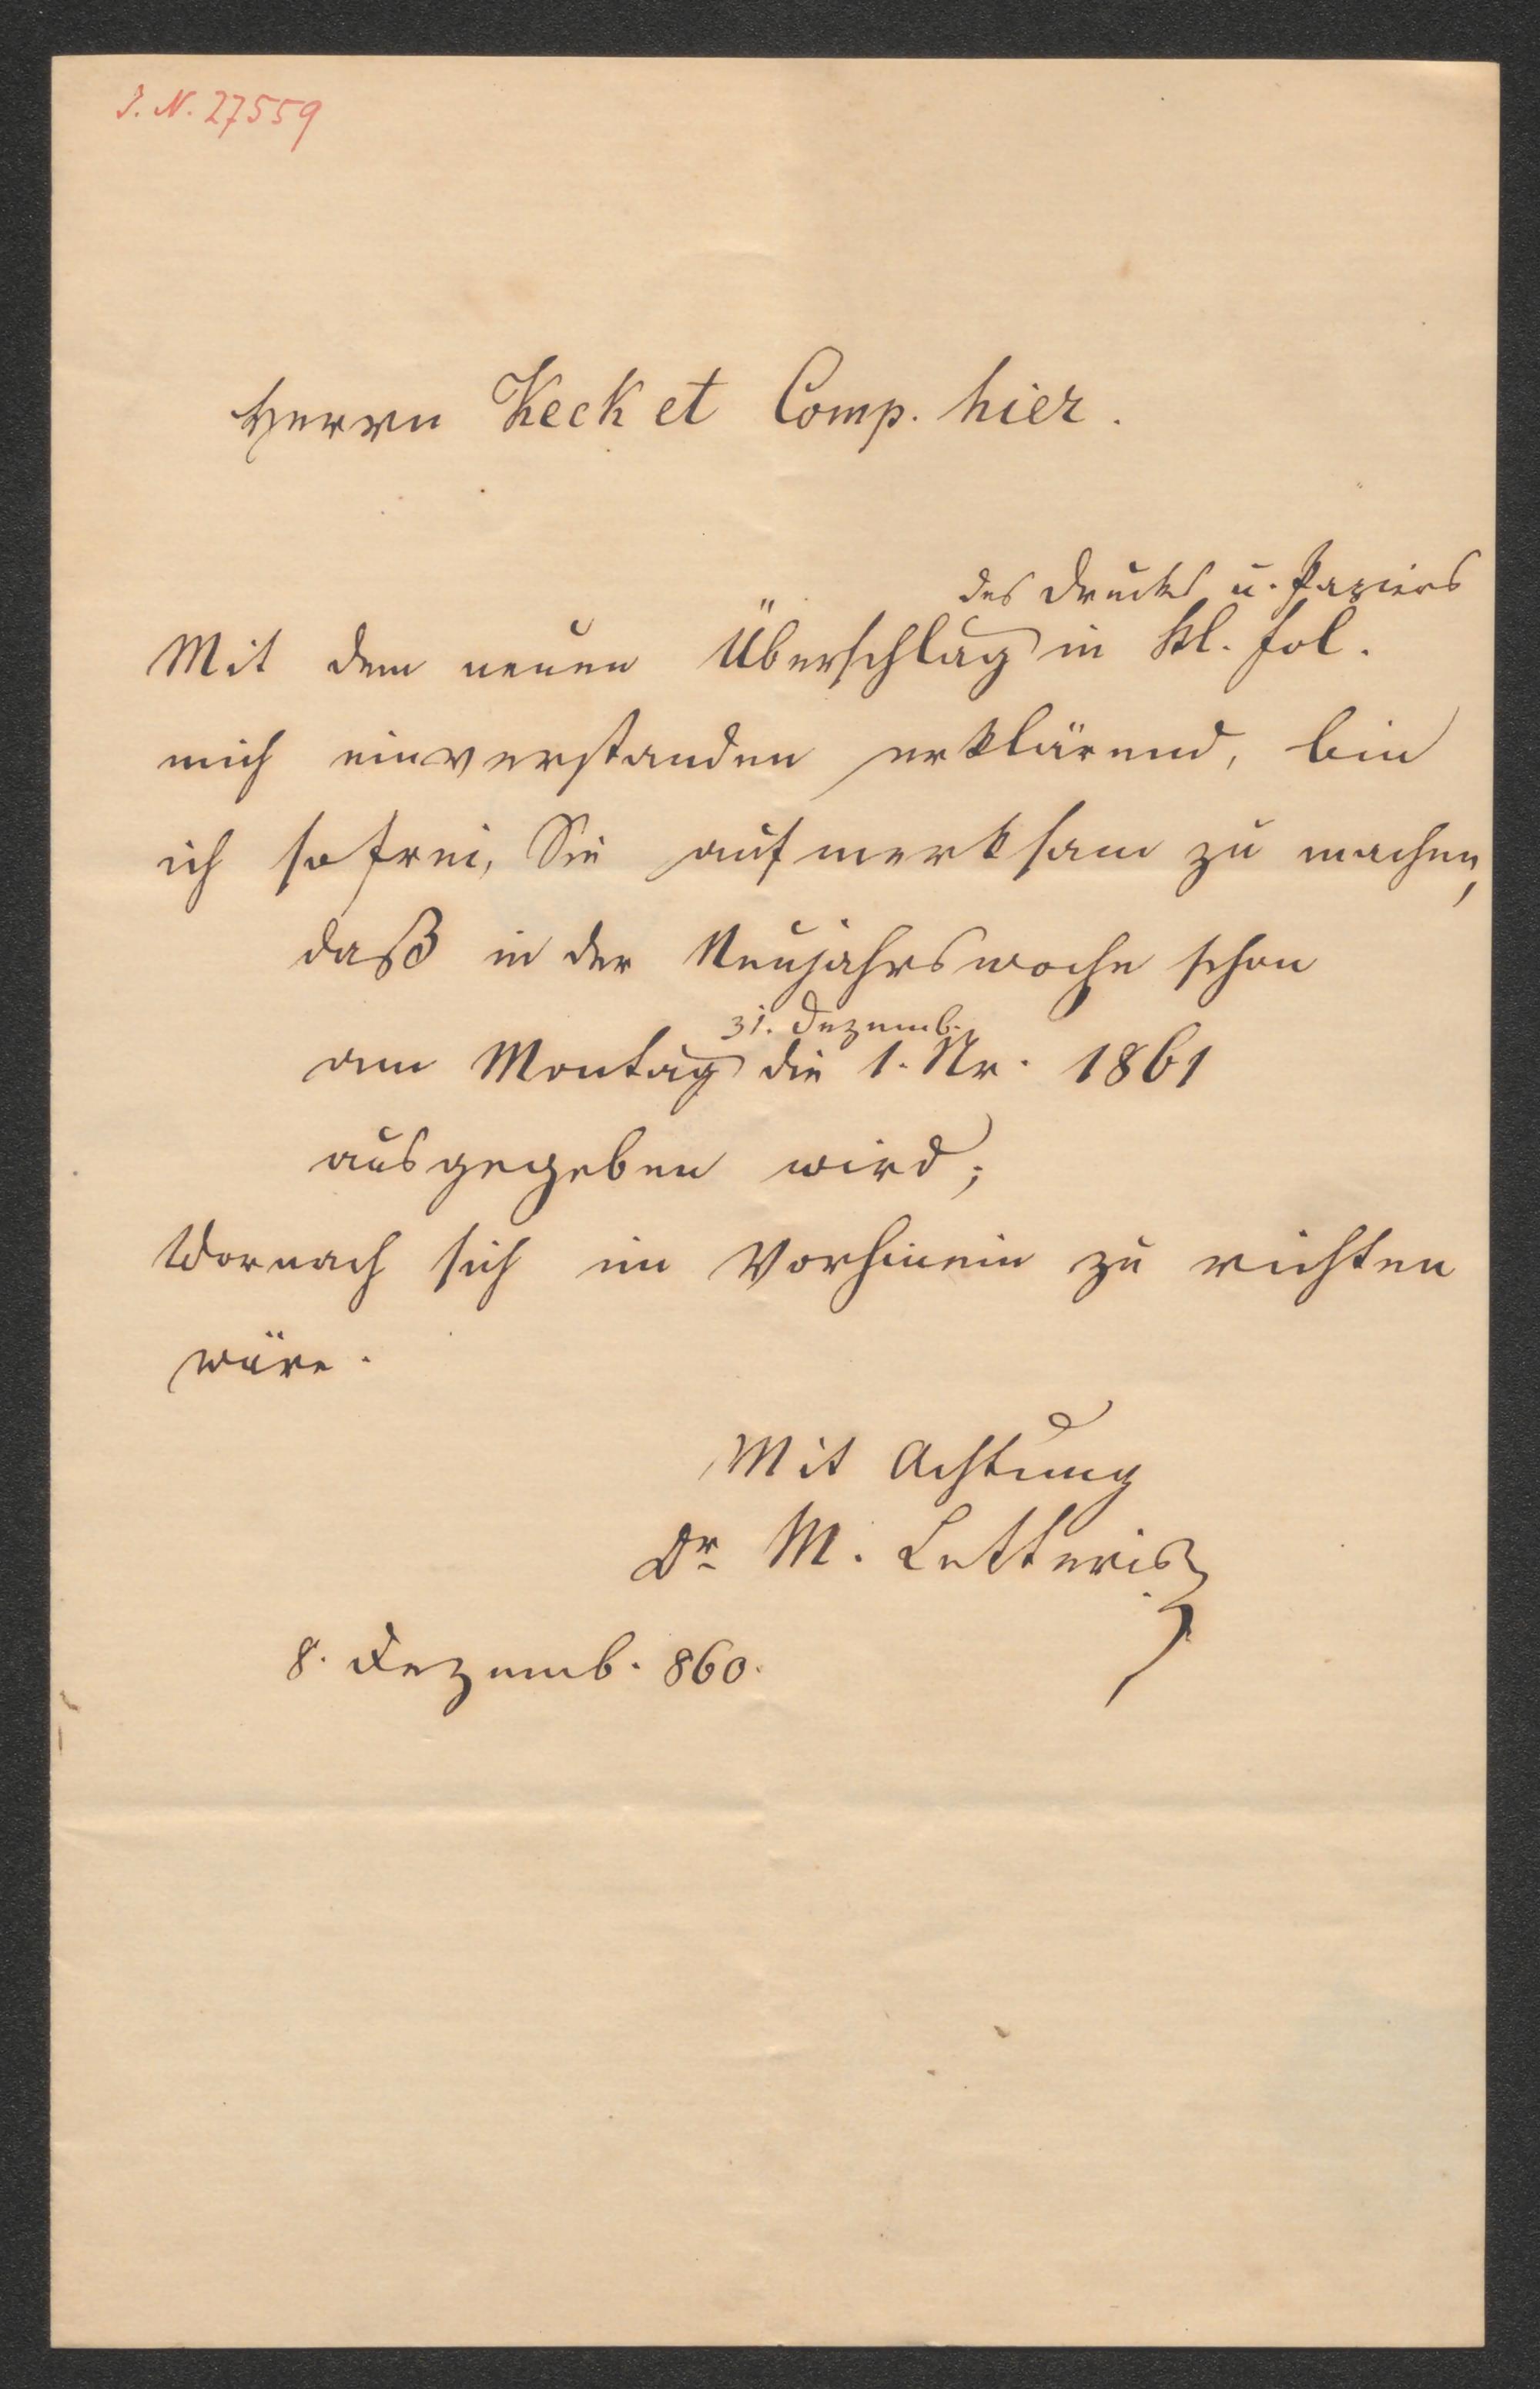 I. N. 27559
Herrn Keck et Comp. hier.
des Drucks u. Papiers
Mit dem neuen Überschlag in kl. fol.
mich einverstanden erklärend, bin
ich so frei, Sie aufmerksam zu machen,
daß in der Neujahrswoche schon
31. Dezemb.
am Montag die 1. Nr. 1861
ausgegeben wird;
Wornach sich im Vorhinein zu richten
wäre.
Mit Achtung
Dr. M. Letteris
8. Dezemb. 860.